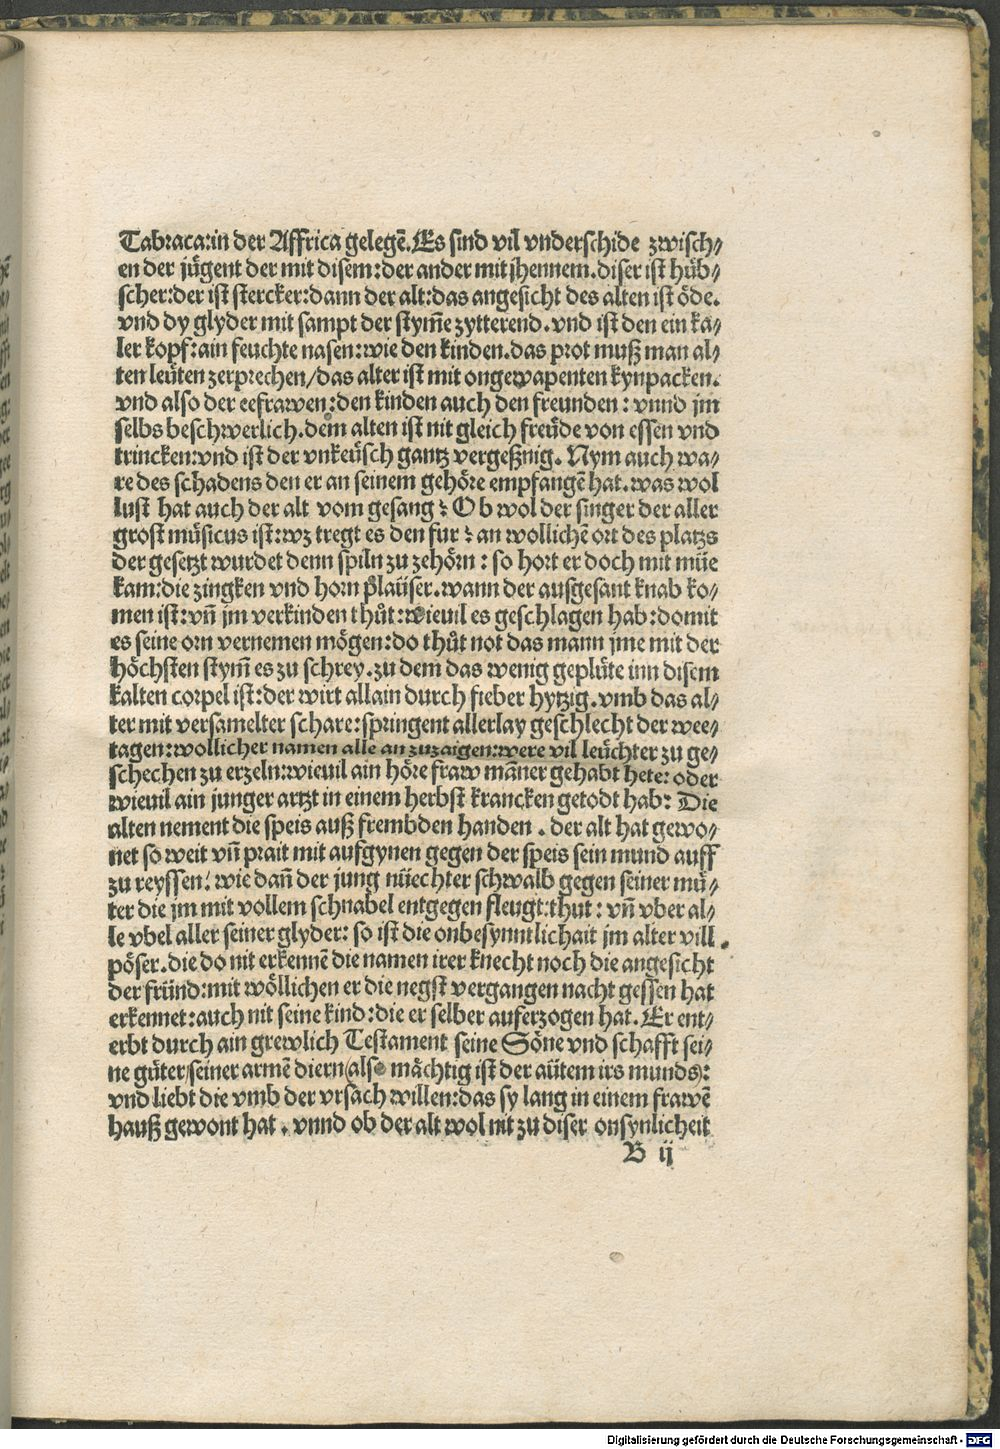 Tabraca:in der Affrica gelegē.Es sind vil vnderschide zwisch⸗
en der jügent der mit disem:der ander mit jhennem.diser ist hüb⸗
scher:der ist stercker:dann der alt:das angesicht des alten ist öde.
vnd dy glyder mit sampt der stym̄e zytterend.vnd ist den ein ka⸗
ler kopf:ain feuchte nasen:wie den kinden.das prot muß man al⸗
ten leüten zerprechen/das alter ist mit ongewapenten kynpacken.
vnd also der eefrawen:den kinden auch den freunden : vnnd jm
selbs beschwerlich.dem alten ist nit gleich freüde von essen vnd
trincken:vnd ist der vnkeüsch gantz vergeßnig. Nym auch wa⸗
re des schadens den er an seinem gehöre empfangē hat.was wol
lust hat auch der alt vom gesang ? Ob wol der singer der aller
grost müsicus ist:wz tregt es den fur ? an wollichē ort des platzs
der gesetzt wurdet denn spiln zu zehörn : so hort er doch mit müe
kam:die zingken vnd horn plaüser.wann der ausgesant knab ko⸗
men ist:vn̄ jm verkinden thůt:wieuil es geschlagen hab:domit
es seine orn vernemen mögen:do thůt not das mann jme mit der
höchsten stym̄ es zu schrey.zu dem das wenig geplüte inn disem
kalten corpel ist:der wirt allain durch fieber hytzig.vmb das al⸗
ter mit versamelter schare:springent allerlay geschlecht der wee⸗
tagen:wollicher namen alle an zuzaigen:were vil leüchter zu ge⸗
schechen zu erzeln:wieuil ain höre fraw mān̄er gehabt hete: oder
wieuil ain junger artzt in einem herbst krancken getodt hab: Die
alten nement die speis auß frembden handen . der alt hat gewo⸗
net so weit vn̄ prait mit aufgynen gegen der speis sein mund auff
zu reyssen: wie dan̄ der jung nüechter schwalb gegen seiner mů⸗
ter die jm mit vollem schnabel entgegen fleugt:thut : vn̄ vber al⸗
le vbel aller seiner glyder: so ist die onbesynntlichait jm alter vill
pöser.die do nit erkennē die namen irer knecht noch die angesicht
der fründ:mit wöllichen er die negst vergangen nacht gessen hat
erkennet:auch nit seine kind:die er selber auferzogen hat. Er ent⸗
erbt durch ain grewlich Testament seine Söne vnd schafft sei⸗
ne güter/seiner armē diern(also mächtig ist der aütem irs munds):
vnd liebt die vmb der vrsach willen:das sy lang in einem frawē
hauß gewont hat . vnnd ob der alt wol nit zu diser onsynlicheit
B ij
Digitalisierung gefördert durch die Deutsche Forschungsgemeinschaft - DFG